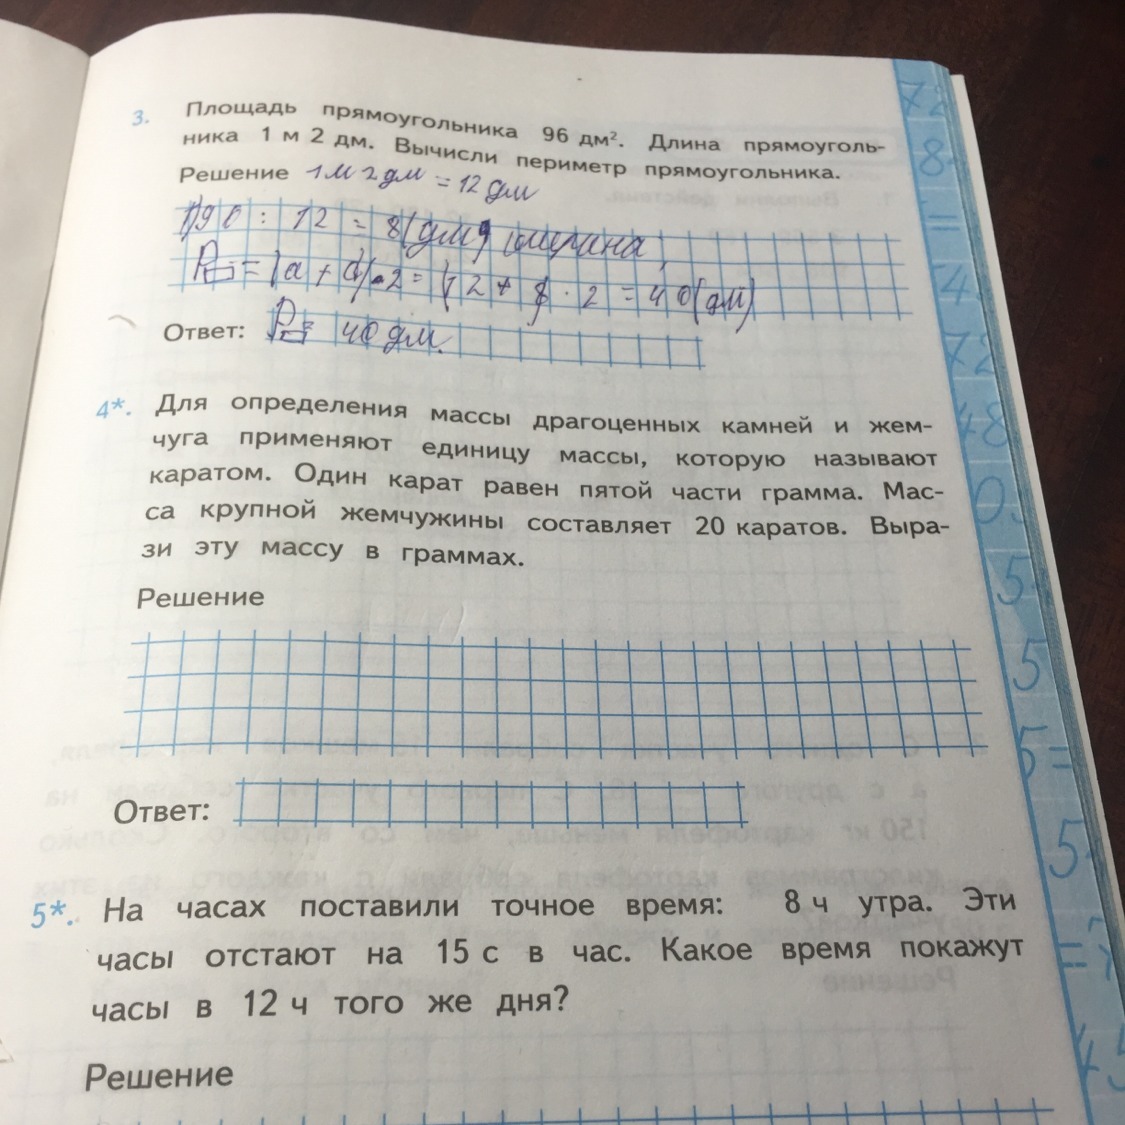 3. Площадь прямоугольника 96 дм². Длина прямоуголь-
ника 1 м 2 дм. Вычисли периметр прямоугольника.
Решение 1м 2дм = 12 дм
1) 96 : 12 = 8(дм) ширина;
P = (a + b)·2 = (12 + 8) · 2 = 40(дм)
Ответ: P = 40 дм.
4*. Для определения массы драгоценных камней и жем-
чуга применяют единицу массы, которую называют
каратом. Один карат равен пятой части грамма. Мас-
са крупной жемчужины составляет 20 каратов. Выра-
зи эту массу в граммах.
Решение
Ответ:
5*. На часах поставили точное время: 8 ч утра. Эти
часы отстают на 15 с в час. Какое время покажут
часы в 12 ч того же дня?
Решение